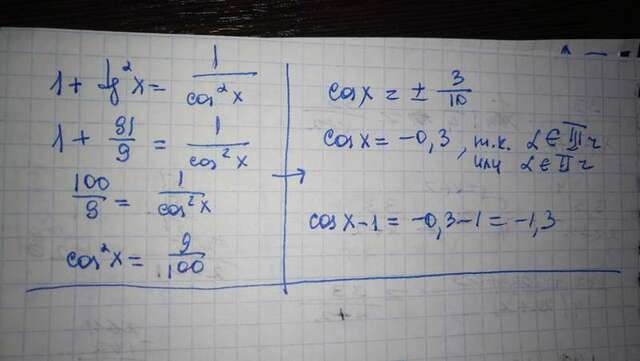 1 + tg²x = 1/cos²x
1 + 91/9 = 1/cos²x
100/9 = 1/cos²x
cos²x = 9/100
cosx = ± 3/10
cosx = -0,3, т.к. α ∈ III ч
или α ∈ II ч
cosx-1 = -0,3-1 = -1,3